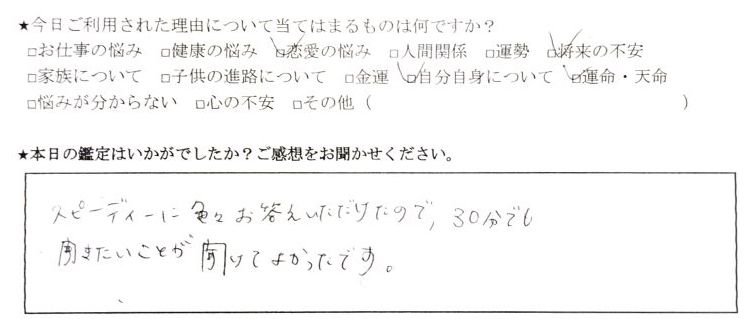 ★今日ご利用された理由について当てはまるものは何ですか？
□お仕事の悩み □健康の悩み ☑恋愛の悩み □人間関係 □運勢 ☑将来の不安
□家族について □子供の進路について □金運 ☑自分自身について ☑運命・天命
□悩みが分からない □心の不安 □その他（ ）
★本日の鑑定はいかがでしたか？ご感想をお聞かせください。
スピーディーに色々お答えいただけたので、30分でも
聞きたいことが聞けてよかったです。